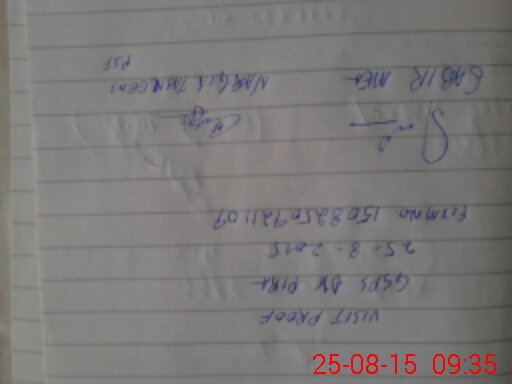 VISIT PROOF
GGPS DK PIRA
25-8-2015
FORM NO 1508250921109
SABIR MEA
NARGIS TASNEEM
PST
25-08-15 09:35